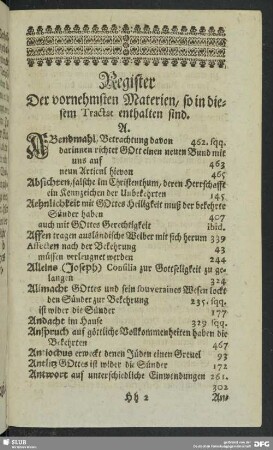 Register
Der vornehmsten Materien, so in die-
sem Tractat enthalten sind.
A.
ABendmahl, Betrachtung davon 462. sqq.
darinnen richtet GOtt einen neuen Bund mit
uns auf 463
neun Articul hievon 465
Absichten, falsche im Christenthum, deren Herrschafft
ein Kennzeichen der Unbekehrten 145
Aehnlichkeit mit GOttes Heiligkeit muß der bekehrte
Sünder haben 407
auch mit GOttes Gerechtigkeit ibid.
Affen tragen ausländische Weiber mit sich herum 339
Affecten nach der Bekehrung 43
müssen verleugnet werden 244
Alleins (Joseph) Consilia zur Gottseligkeit zu ge-
langen 324
Allmacht GOttes und sein souveraines Wesen lockt
den Sünder zur Bekehrung 235. sqq.
ist wider die Sünder 177
Andacht im Hause 329 sqq.
Anspruch auf göttliche Vollkommenheiten haben die
Bekehrten 467
Antiochus erweckt denen Jüden einen Greuel 93
Antlitz GOttes ist wider die Sünder 172
Antwort auf unterschiedliche Einwendungen 261.
302
Hh 2 An-
SLUB